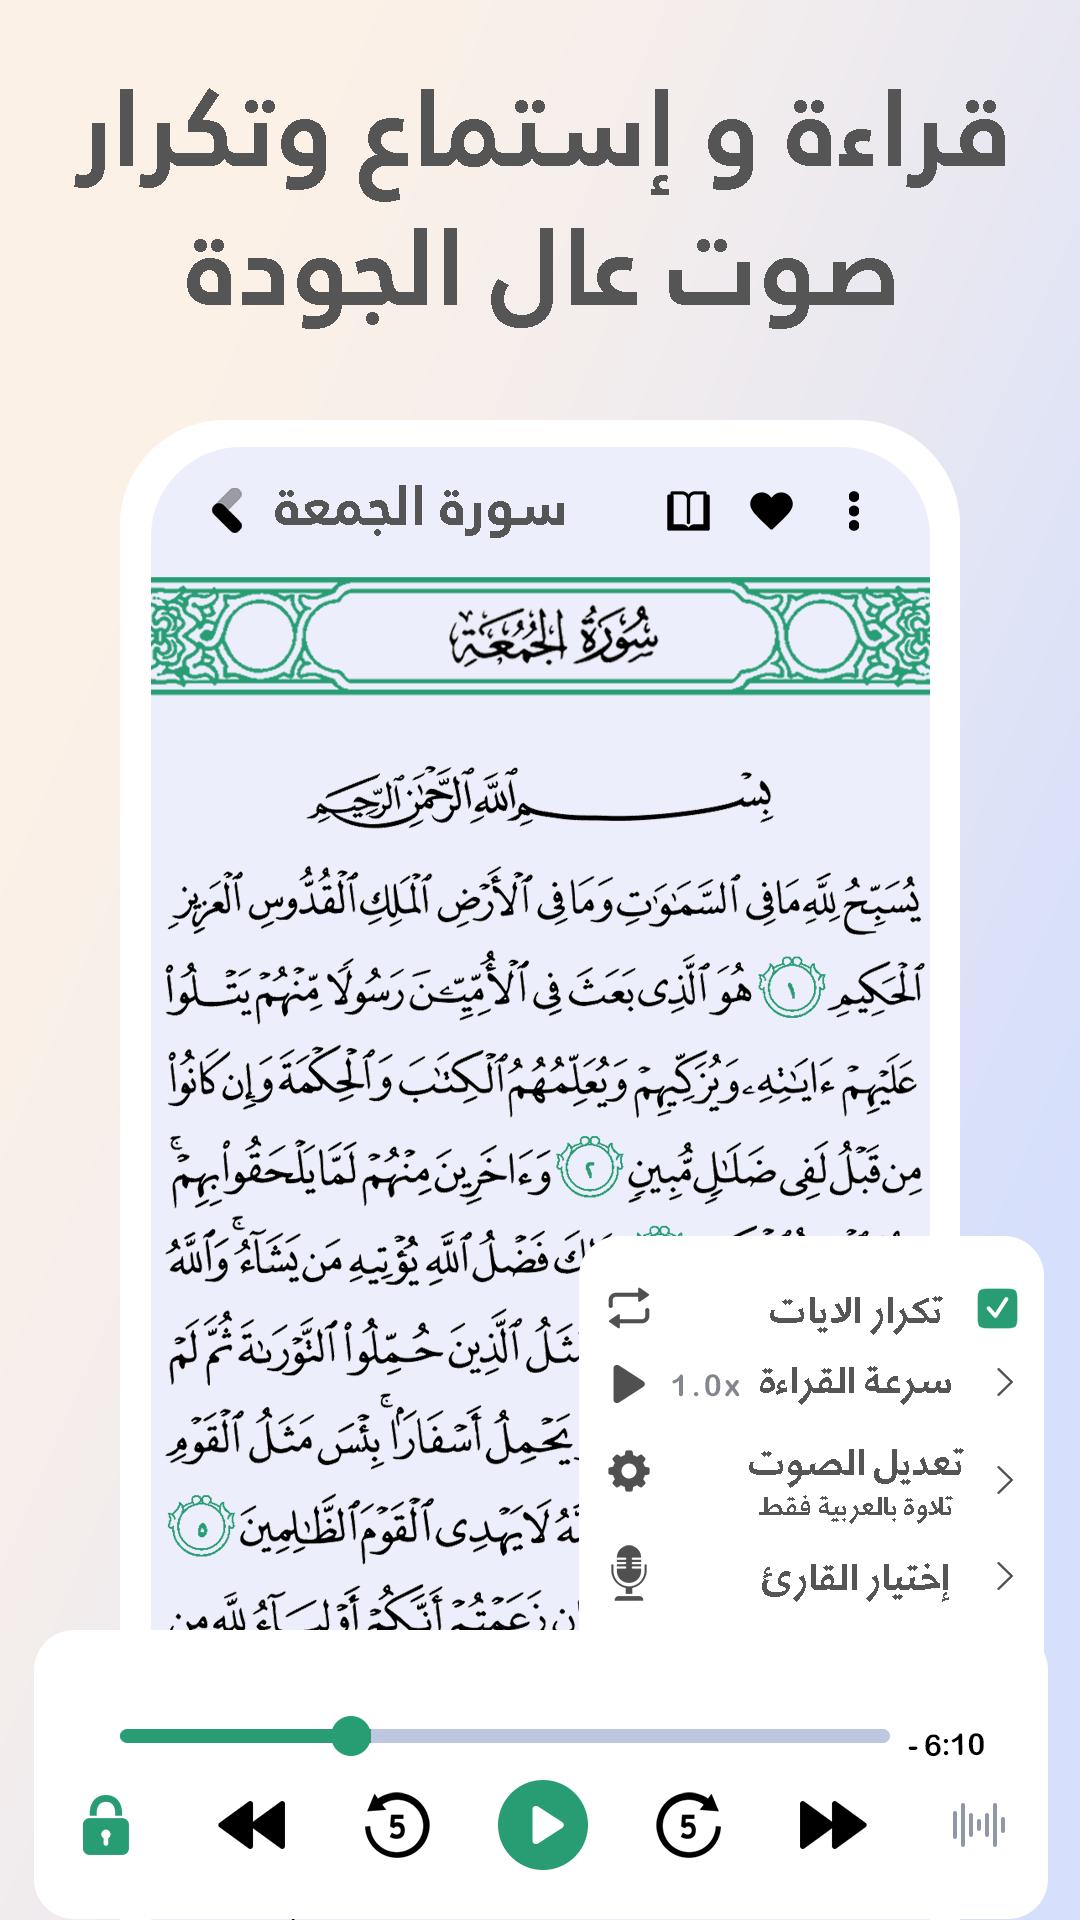 قراءة و إستماع وتكرار
صوت عال الجودة
سورة الجمعة
سُورَةُ الجُمُعَةِ
بِسْمِ ٱللَّهِ ٱلرَّحْمَٰنِ ٱلرَّحِيمِ
يُسَبِّحُ لِلَّهِ مَا فِى ٱلسَّمَٰوَٰتِ وَمَا فِى ٱلْأَرْضِ ٱلْمَلِكِ ٱلْقُدُّوسِ ٱلْعَزِيزِ
ٱلْحَكِيمِ ١ هُوَ ٱلَّذِى بَعَثَ فِى ٱلْأُمِّيِّـۧنَ رَسُولًا مِّنْهُمْ يَتْلُوا۟
عَلَيْهِمْ ءَايَٰتِهِۦ وَيُزَكِّيهِمْ وَيُعَلِّمُهُمُ ٱلْكِتَٰبَ وَٱلْحِكْمَةَ وَإِن كَانُوا۟
مِن قَبْلُ لَفِى ضَلَٰلٍ مُّبِينٍ ٢ وَءَاخَرِينَ مِنْهُمْ لَمَّا يَلْحَقُوا۟ بِهِمْ ۚ
فَضْلُ ٱللَّهِ يُؤْتِيهِ مَن يَشَآءُ ۚ وَٱللَّهُ
ٱلَّذِينَ حُمِّلُوا۟ ٱلتَّوْرَىٰةَ ثُمَّ لَمْ
يَحْمِلُ أَسْفَارًۢا ۚ بِئْسَ مَثَلُ ٱلْقَوْمِ
لَا يَهْدِى ٱلْقَوْمَ ٱلظَّٰلِمِينَ ٥
زَعَمْتُمْ أَنَّكُمْ أَوْلِيَآءُ لِلَّهِ مِن
تكرار الايات
سرعة القراءة 1.0x
تعديل الصوت
تلاوة بالعربية فقط
إختيار القارئ
- 6:10
5 5